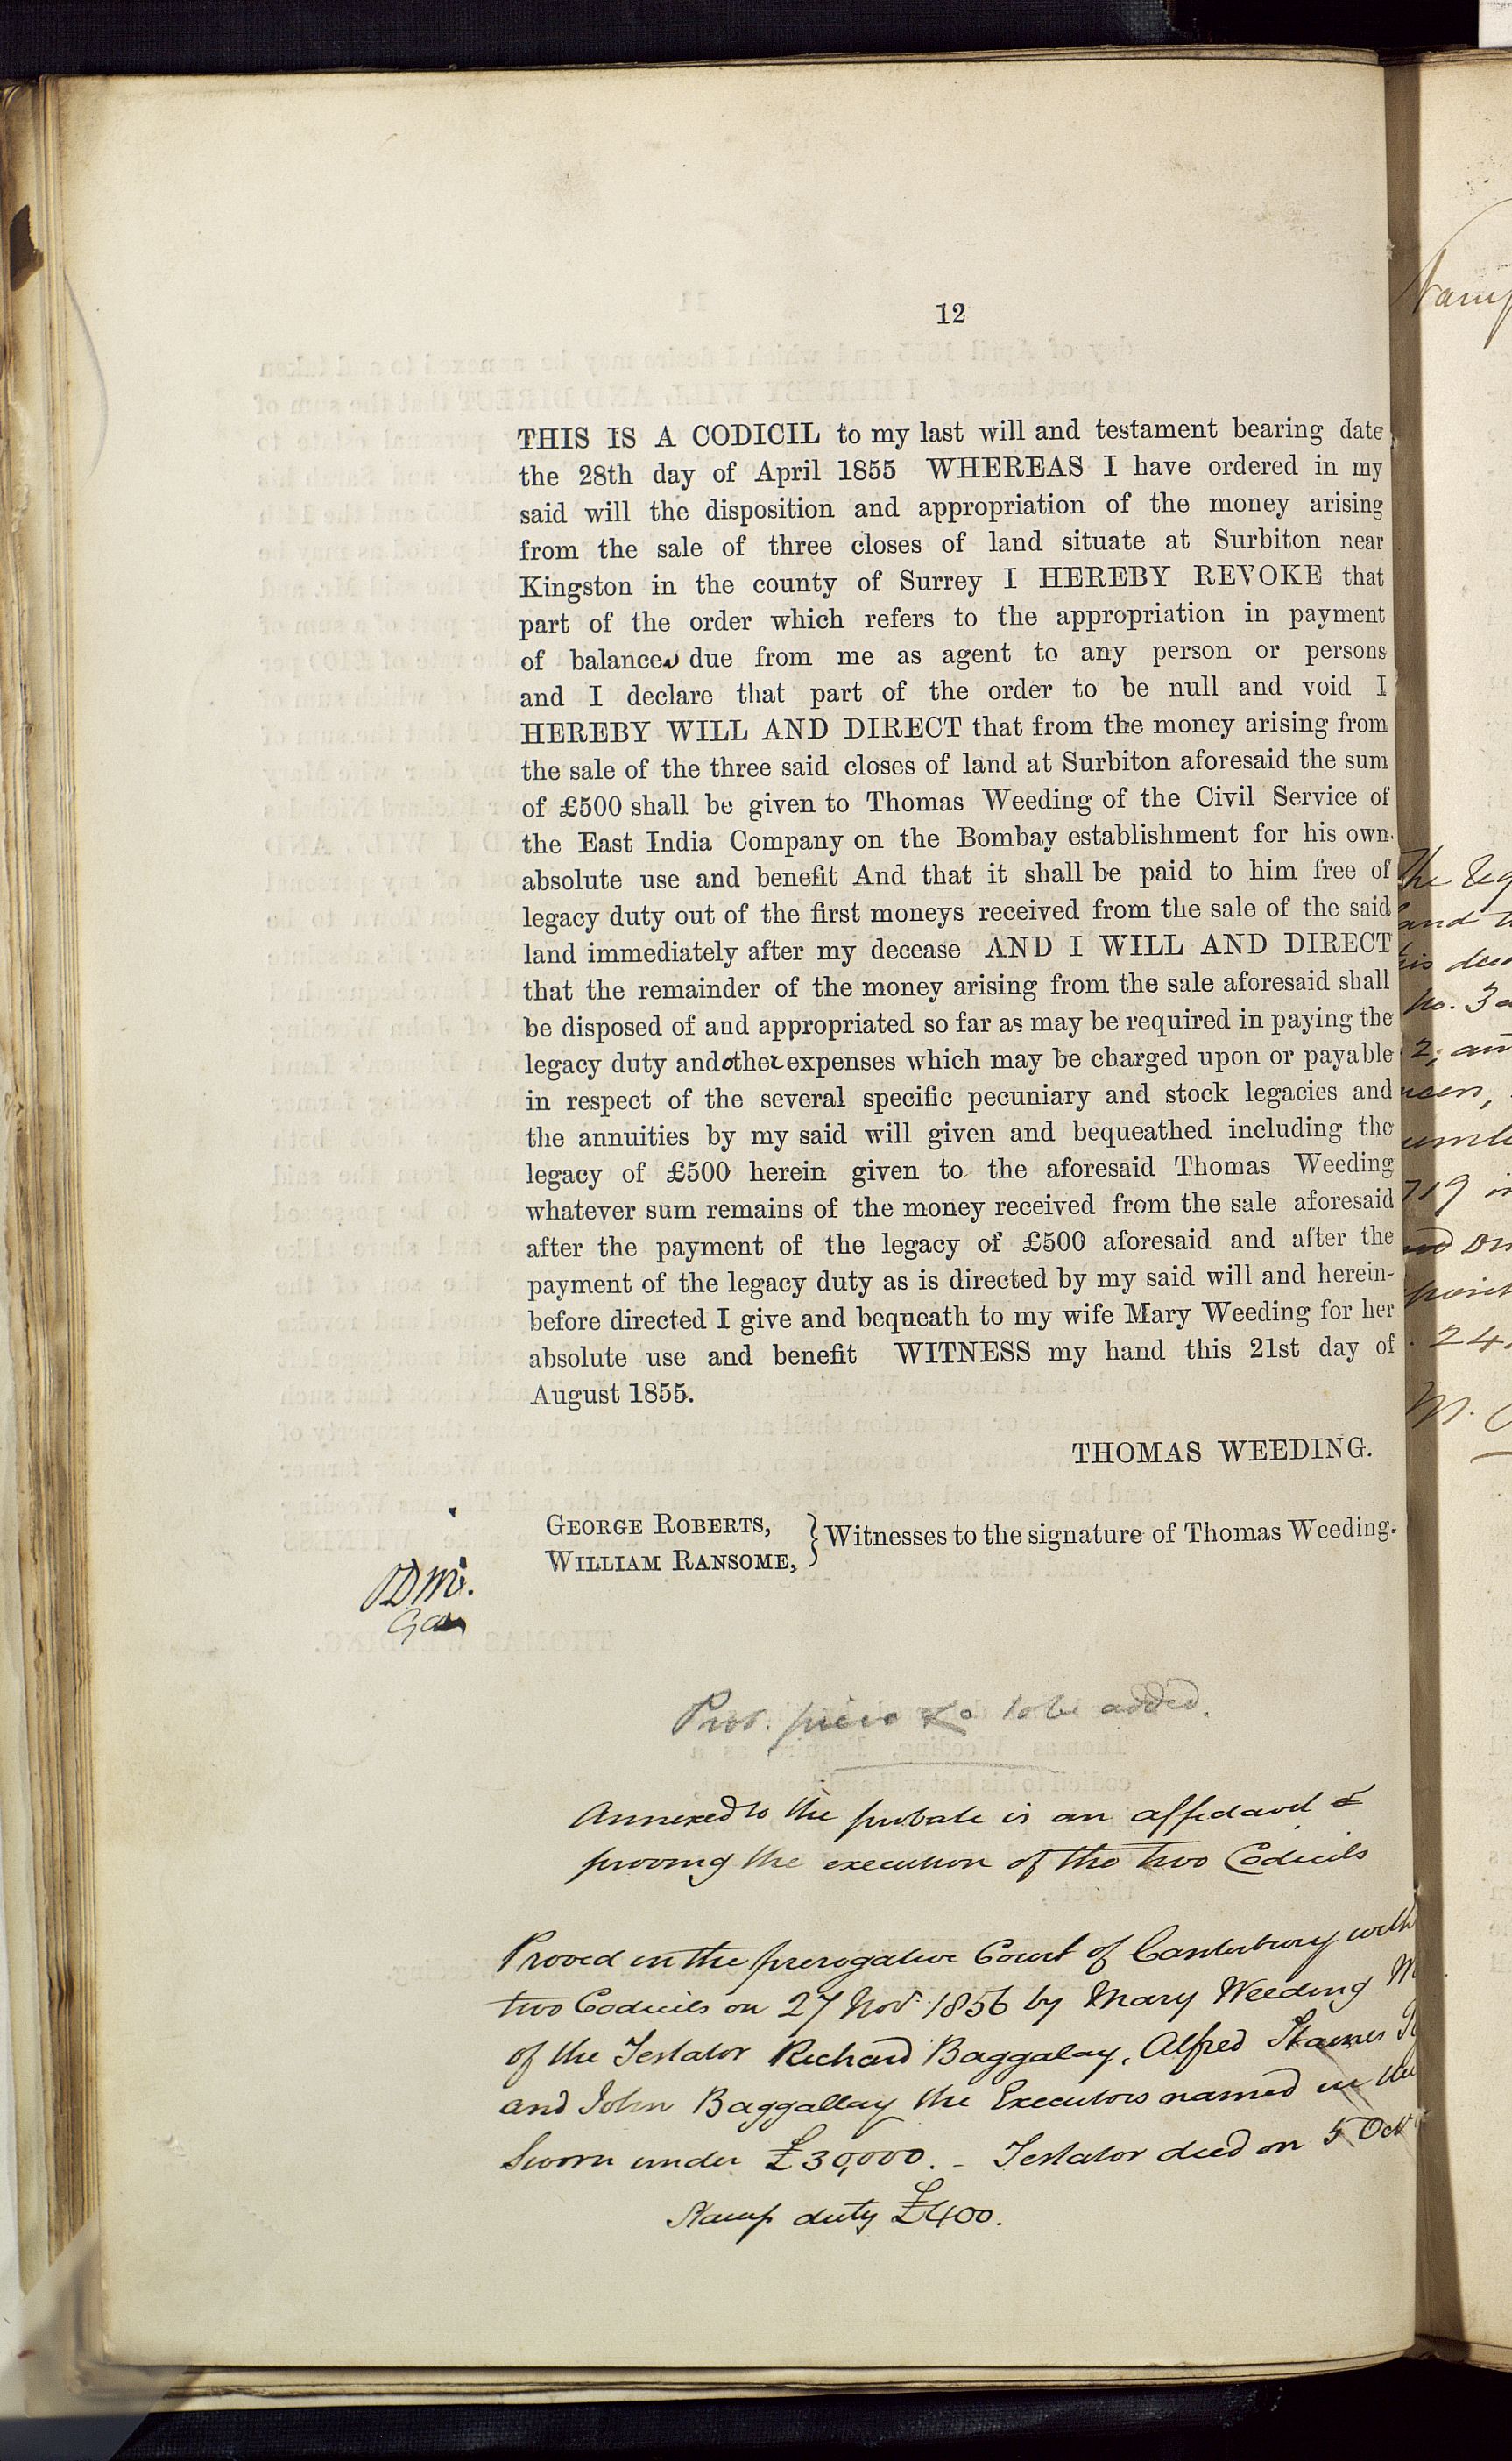 12
THIS IS A CODICIL to my last will and testament bearing date
the 28th day of April 1855 WHEREAS I have ordered in my
said will the disposition and appropriation of the money arising
from the sale of three closes of land situate at Surbiton near
Kingston in the county of Surrey I HEREBY REVOKE that
part of the order which refers to the appropriation in payment
of balances due from me as agent to any person or persons
and I declare that part of the order to be null and void I
HEREBY WILL AND DIRECT that from the money arising from
the sale of the three said closes of land at Surbiton aforesaid the sum
of £500 shall be given to Thomas Weeding of the Civil Service of
the East India Company on the Bombay establishment for his own
absolute use and benefit And that it shall be paid to him free of
legacy duty out of the first moneys received from the sale of the said
land immediately after my decease AND I WILL AND DIRECT
that the remainder of the money arising from the sale aforesaid shall
be disposed of and appropriated so far as may be required in paying the
legacy duty and other expenses which may be charged upon or payable
in respect of the several specific pecuniary and stock legacies and
the annuities by my said will given and bequeathed including the
legacy of £500 herein given to the aforesaid Thomas Weeding
whatever sum remains of the money received from the sale aforesaid
after the payment of the legacy of £500 aforesaid and after the
payment of the legacy duty as is directed by my said will and herein-
before directed I give and bequeath to my wife Mary Weeding for her
absolute use and benefit WITNESS my hand this 21st day of
August 1855.
THOMAS WEEDING.
GEORGE ROBERTS,
WILLIAM RANSOME, } Witnesses to the signature of Thomas Weeding.
to be added.
Annexed to the probate is an affidavit
proving the execution of the two Codicils
Proved in the prerogative Court of Canterbury with
two Codicils on 27 Nov 1856 by Mary Weeding
of the Testator Richard Baggalay, Alfred
and John Baggallay the Executors named in the
Sworn under £30,000. - Testator died on 5 Oct
Stamp duty £400.